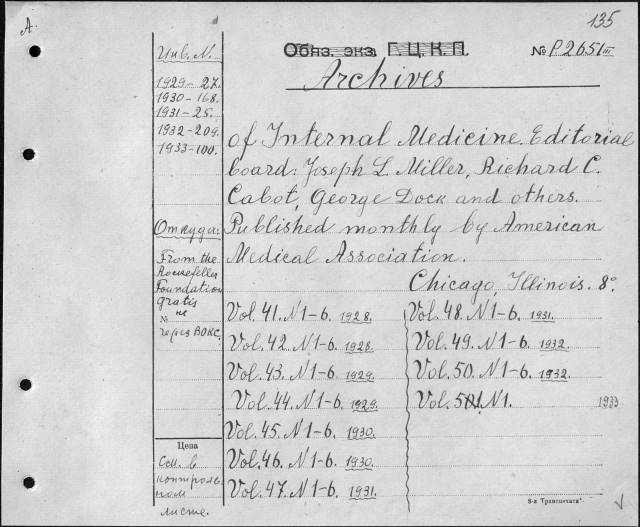 A.
135
Обяз. экз. Г. Ц. К. П.
№ P2651 III
Archives
of Internal Medicine. Editorial
board: Joseph L. Miller, Richard C.
Cabot, George Dock and others.
Published monthly by American
Medical Association.
Chicago, Illinois. 8°.
Vol. 41. N 1-6. 1928.
Vol. 42. N 1-6. 1928.
Vol. 43. N 1-6. 1929.
Vol. 44. N 1-6. 1929.
Vol. 45. N 1-6. 1930.
Vol. 46. N 1-6. 1930.
Vol. 47. N 1-6. 1931.
Vol. 48. N 1-6. 1931.
Vol. 49. N 1-6. 1932.
Vol. 50. N 1-6. 1932.
Vol. 51. N 1. 1933
Инв. N.
1929-27.
1930-168.
1931-25.
1932-209.
1933-100.
Откуда:
From the
Rockefeller
Foundation
gratis
№
через ВОКС.
Цена
См. в
контроль
ном
листе.
8-я „Транспечать“.